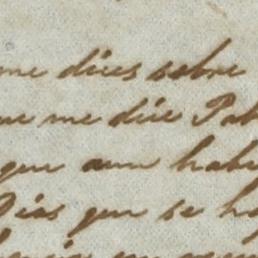 me dices sobre
que me dice Pab
que aun habe
Dias que se ha